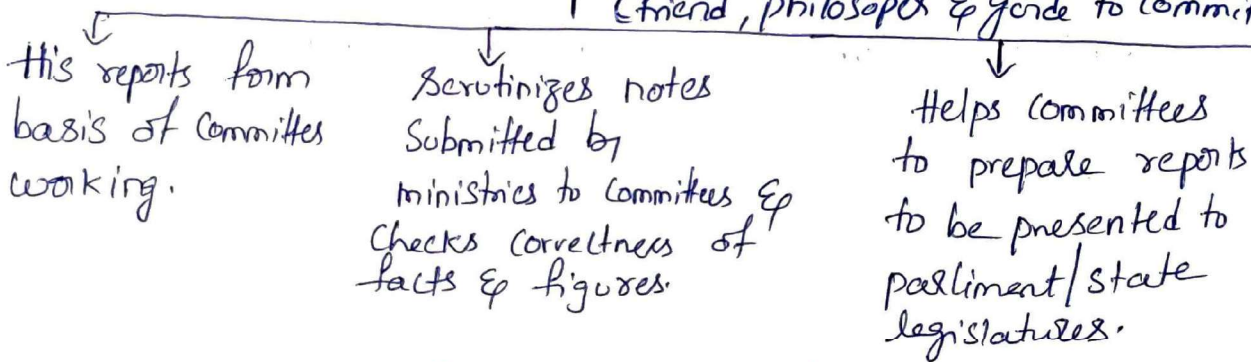 (friend, philosoper & gorde to commi
His reports form
basis of Committes
working.
Scrutinizes notes
Submitted by
ministries to Committees &
Checks Correctness of
facts & figures.
Helps Committees
to prepare reports
to be presented to
parliment/state
legislatures.